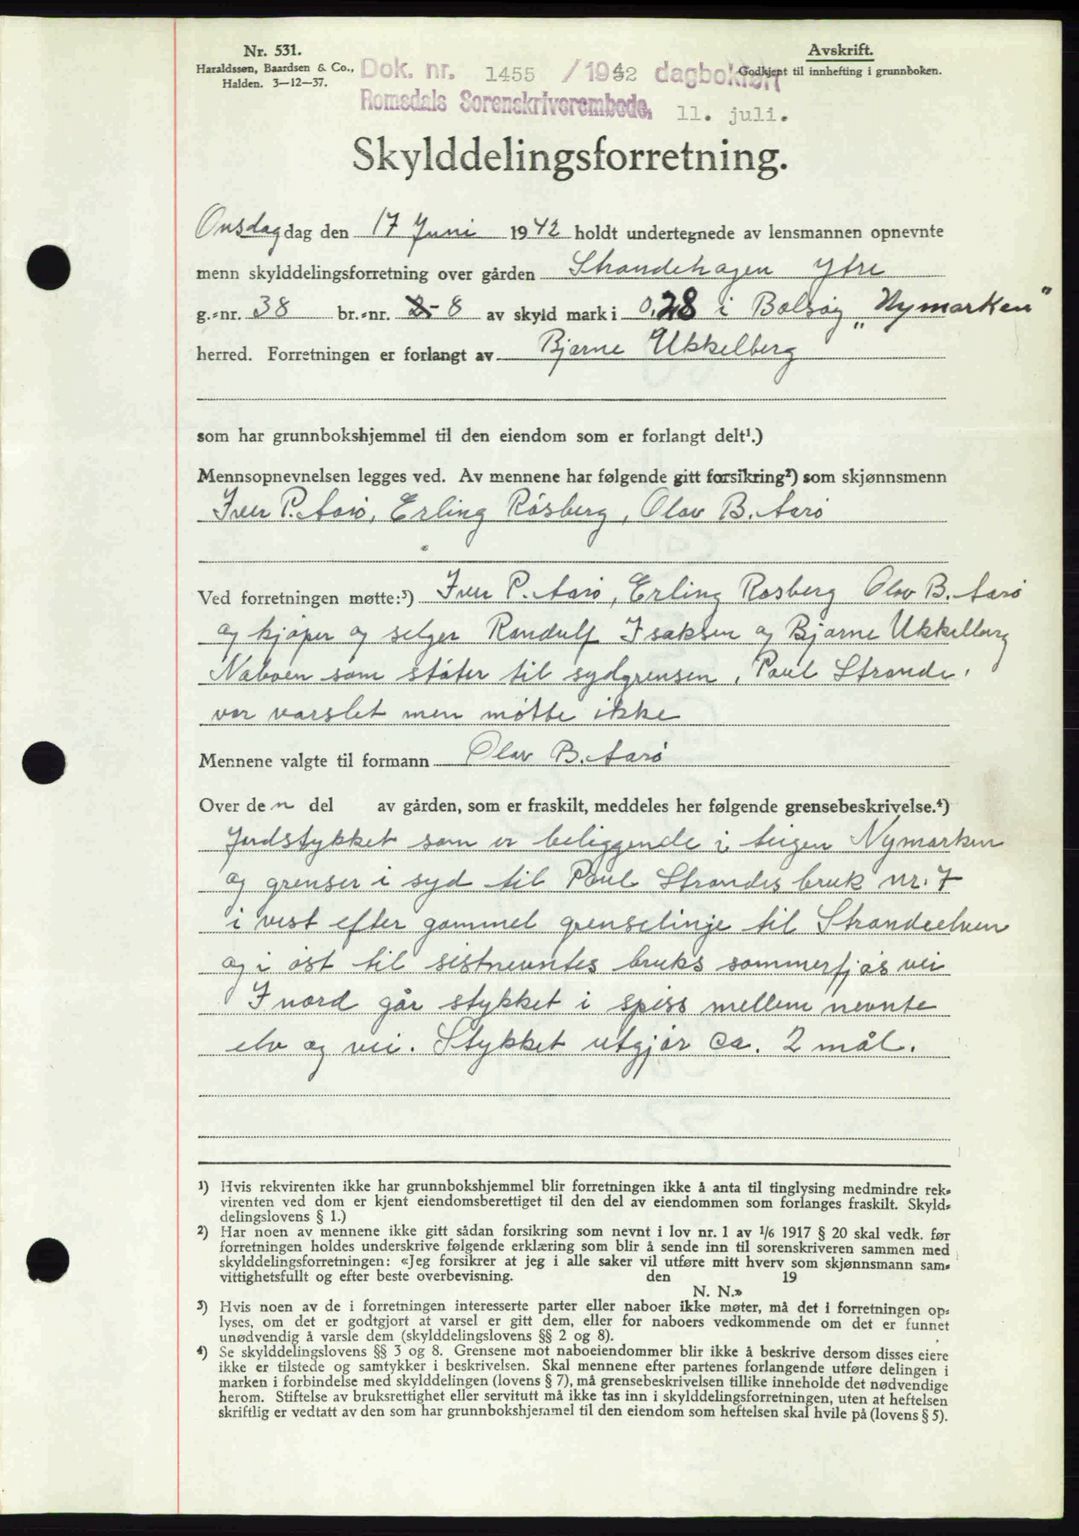 Nr. 531.
Haraldssen, Baardsen & Co.,
Halden. 3—12—37.
Avskrift.
Godkjent til innhefting i grunnboken.
Dok. nr. 1455 /1942 dagbokført
Romsdals Sorenskriverembede, 11. juli.
Skylddelingsforretning.
Onsdag dag den 17 Juni 1942 holdt undertegnede av lensmannen opnevnte
menn skylddelingsforretning over gården Strandehagen ytre
g.-nr. 38 br.-nr. 8 av skyld mark i 0,28 i Bolsøy „Nymarken"
herred. Forretningen er forlangt av Bjarne Ukkelberg
som har grunnbokshjemmel til den eiendom som er forlangt delt¹.)
Mennsopnevnelsen legges ved. Av mennene har følgende gitt forsikring²) som skjønnsmenn
Iver P. Aarø, Erling Røsberg, Olav B. Aarø
Ved forretningen møtte:³) Iver P. Aarø, Erling Rosberg Olav B. Aarø
og kjøper og selger Randulf Isaksen og Bjarne Ukkelberg
Naboen som støter til sydgrensen, Paul Strande,
var varslet men møtte ikke
Mennene valgte til formann Olav B. Aarø
Over den del av gården, som er fraskilt, meddeles her følgende grensebeskrivelse.⁴)
Jordstykket som er beliggende i teigen Nymarken
og grenser i syd til Paul Strandes bruk nr. 7
i vest efter gammel grenselinje til Strandeelven
og i øst til sistnevntes bruks sommerfjøs vei
I nord går stykket i spiss mellem nevnte
elv og vei. Stykket utgjør ca. 2 mål.
¹) Hvis rekvirenten ikke har grunnbokshjemmel blir forretningen ikke å anta til tinglysing medmindre rek-
virenten ved dom er kjent eiendomsberettiget til den del av eiendommen som forlanges fraskilt. Skyld-
delingslovens § 1.)
²) Har noen av mennene ikke gitt sådan forsikring som nevnt i lov nr. 1 av 1/6 1917 § 20 skal vedk. før
forretningen holdes underskrive følgende erklæring som blir å sende inn til sorenskriveren sammen med
skylddelingsforretningen: «Jeg forsikrer at jeg i alle saker vil utføre mitt hverv som skjønnsmann sam-
vittighetsfullt og efter beste overbevisning. den 19
N. N.»
³) Hvis noen av de i forretningen interesserte parter eller naboer ikke møter, må det i forretningen op-
lyses, om det er godtgjort at varsel er gitt dem, eller for naboers vedkommende om det er funnet
unødvendig å varsle dem (skylddelingslovens §§ 2 og 8).
⁴) Se skylddelingslovens §§ 3 og 8. Grensene mot naboeiendommer blir ikke å beskrive dersom disses eiere
ikke er tilstede og samtykker i beskrivelsen. Skal mennene efter partenes forlangende utføre delingen i
marken i forbindelse med skylddelingen (lovens § 7), må grensebeskrivelsen tillike inneholde det nødvendige
herom. Stiftelse av bruksrettighet eller servitutt må ikke tas inn i skylddelingsforretningen, uten at heftelsen
skriftlig er vedtatt av den som har grunnbokshjemmel til den eiendom som heftelsen skal hvile på (lovens § 5).